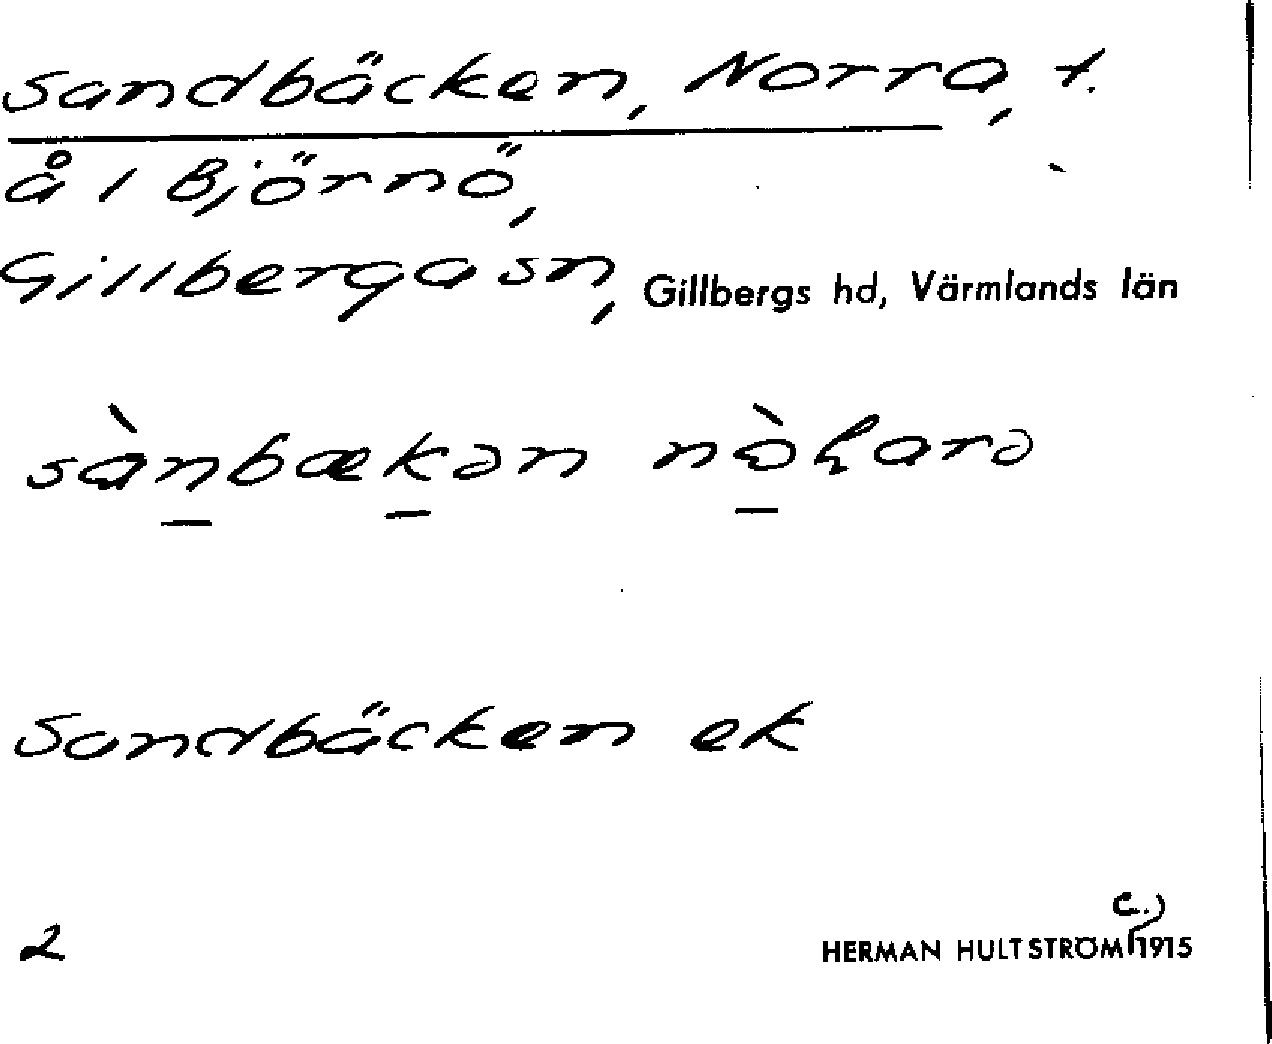 Sandbäcken, Norra, t.
å 1 Björnö,
Gillberga sn, Gillbergs hd, Värmlands län
sànbækən
Sandbäcken ek
2 HERMAN HULTSTRÖM (c.) 1915